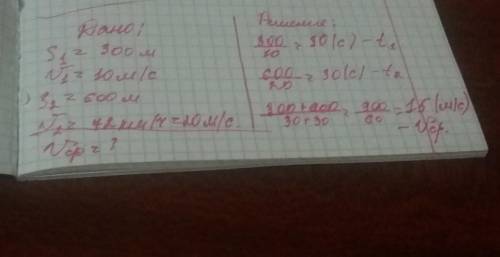 Дано:
S₁ = 300 м
V₁ = 10 м/с
S₂ = 600 м
V₂ = 72 км/ч = 20 м/с.
Vср = ?
Решение:
300/10 = 30 (с) – t₁
600/20 = 30 (с) – t₂
300+600/30+30 = 900/60 = 15 (м/с)
– Vср.